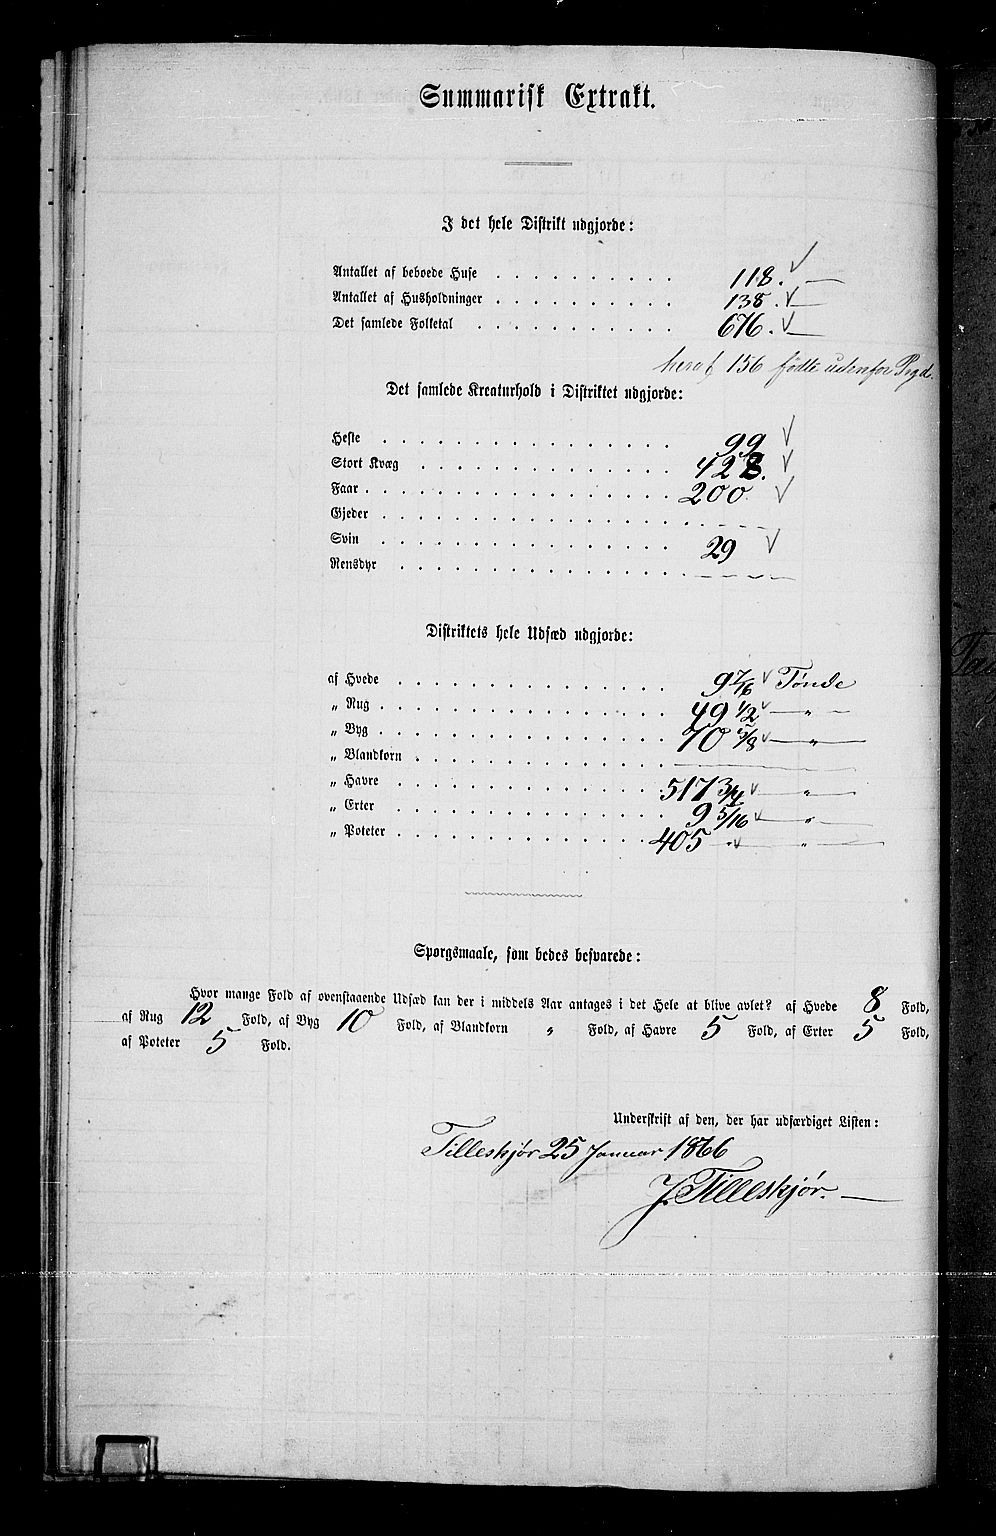 Summarisk Extrakt.
I det hele Distrikt udgjorde:
Antallet af beboede Huse . . . . . . . . 118.
Antallet af Husholdninger . . . . . . . . 138.
Det samlede Folketal . . . . . . . . . 676.
heraf 156 fødte udenfor Prgd.
Det samlede Kreaturhold i Distriktet udgjorde:
Heste . . . . . . . . . . . . 99
Stort Kvæg . . . . . . . . . . 428.
Faar . . . . . . . . . . . . . 200
Gjeder . . . . . . . . . . . .
Svin . . . . . . . . . . . . 29
Rensdyr . . . . . . . . . . .
Distriktets hele Udsæd udgjorde:
af Hvede . . . . . . . . . . . 9 7/16 Tønde
„ Rug . . . . . . . . . . . . 49 1/2 — „ —
„ Byg . . . . . . . . . . . . 70 5/8 — „ —
„ Blandkorn . . . . . . . . . . —
„ Havre . . . . . . . . . . . 517 3/4 — „ —
„ Erter . . . . . . . . . . . 9 5/16 — „ —
„ Poteter . . . . . . . . . . 405 — „ —
Spørgsmaale, som bedes besvarede:
Hvor mange Fold af ovenstaaende Udsæd kan der i middels Aar antages i det Hele at blive avlet? af Hvede 8 Fold,
af Rug 12 Fold, af Byg 10 Fold, af Blandkorn „ Fold, af Havre 5 Fold, af Erter 5 Fold,
af Poteter 5 Fold.
Underskrift af den, der har udfærdiget Listen:
Tilleskjør 25 Januar 1866
J. Tilleskjør.